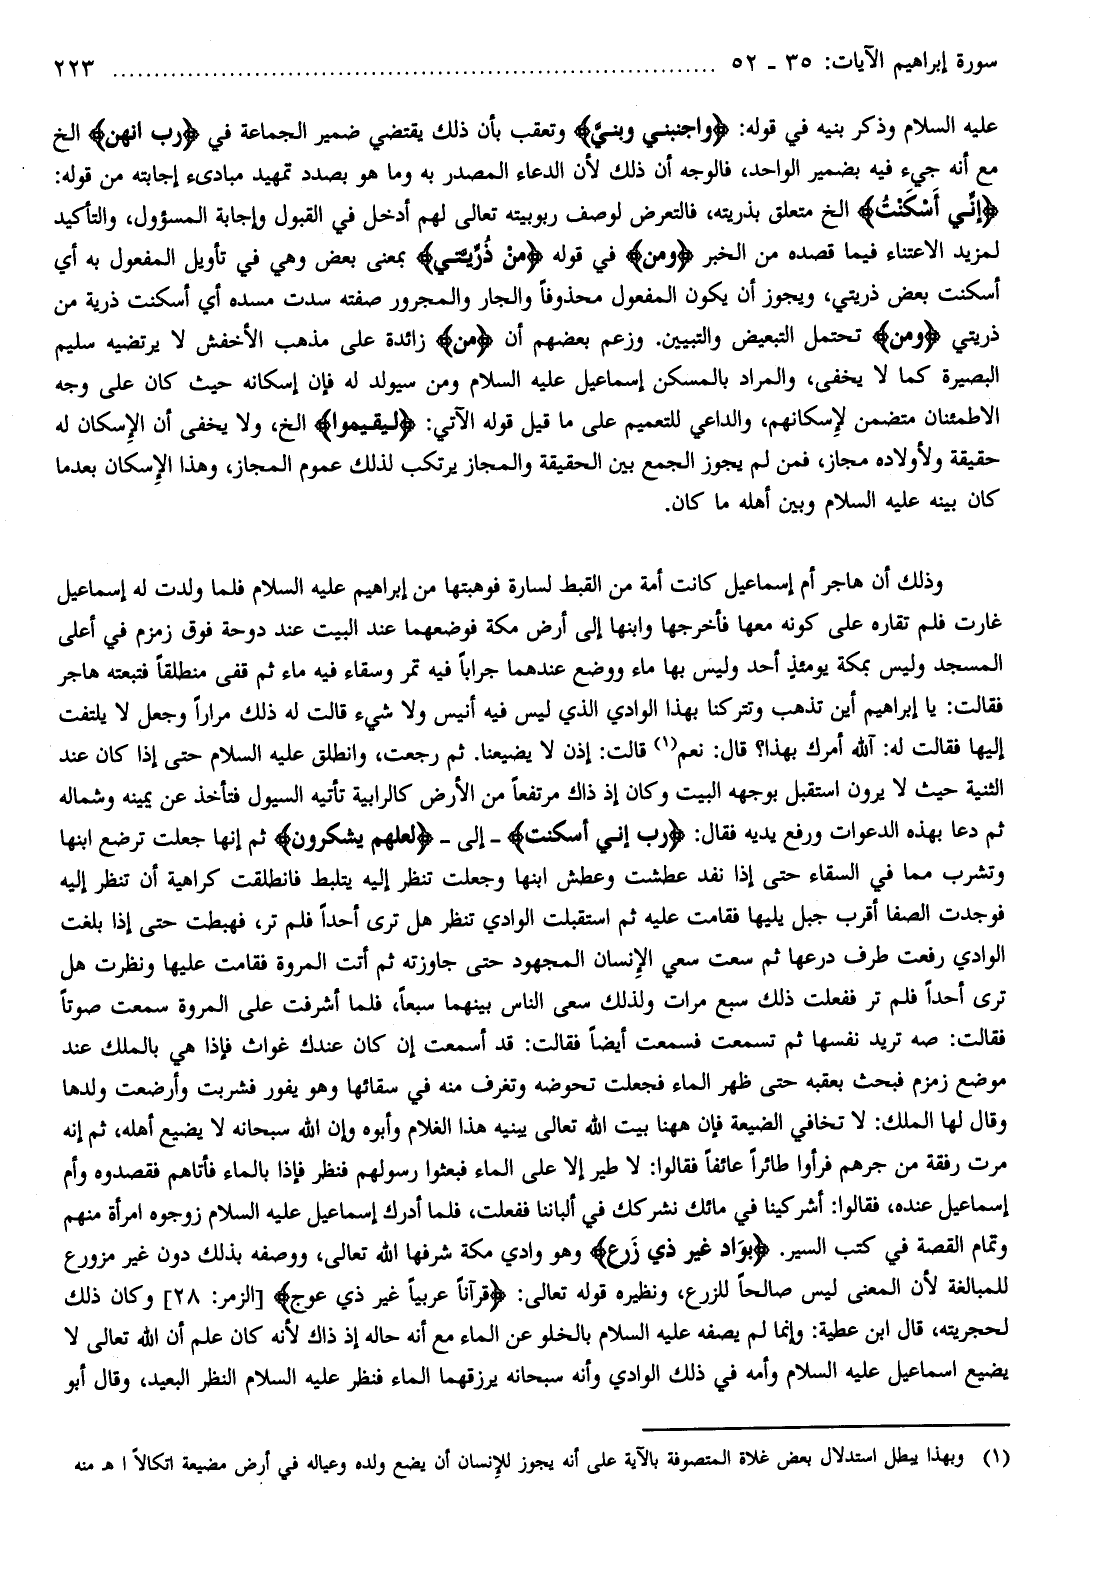 سورة إبراهيم الآيات: ٣٥ ـ ٥٢ ........................................................................ ٢٢٣
عليه السلام وذكر بنيه في قوله: ﴿واجنبني وبنيَّ﴾ وتعقب بأن ذلك يقتضي ضمير الجماعة في ﴿رب انهن﴾ الخ
مع أنه جيء فيه بضمير الواحد، فالوجه أن ذلك لأن الدعاء المصدر به وما هو بصدد تمهيد مبادىء إجابته من قوله:
﴿إنِّي أَسْكَنْتُ﴾ الخ متعلق بذريته، فالتعرض لوصف ربوبيته تعالى لهم أدخل في القبول وإجابة المسؤول، والتأكيد
لمزيد الاعتناء فيما قصده من الخبر ﴿ومن﴾ في قوله ﴿مِنْ ذُرِّيَّتي﴾ بمعنى بعض وهي في تأويل المفعول به أي
أسكنت بعض ذريتي، ويجوز أن يكون المفعول محذوفاً والجار والمجرور صفته سدت مسده أي أسكنت ذرية من
ذريتي ﴿ومن﴾ تحتمل التبعيض والتبيين. وزعم بعضهم أن ﴿من﴾ زائدة على مذهب الأخفش لا يرتضيه سليم
البصيرة كما لا يخفى، والمراد بالمسكن إسماعيل عليه السلام ومن سيولد له فإن إسكانه حيث كان على وجه
الاطمئنان متضمن لإسكانهم، والداعي للتعميم على ما قيل قوله الآتي: ﴿ليقيموا﴾ الخ، ولا يخفى أن الإسكان له
حقيقة ولأولاده مجاز، فمن لم يجوز الجمع بين الحقيقة والمجاز يرتكب لذلك عموم المجاز، وهذا الإسكان بعدما
كان بينه عليه السلام وبين أهله ما كان.
وذلك أن هاجر أم إسماعيل كانت أمة من القبط لسارة فوهبتها من إبراهيم عليه السلام فلما ولدت له إسماعيل
غارت فلم تقاره على كونه معها فأخرجها وابنها إلى أرض مكة فوضعهما عند البيت عند دوحة فوق زمزم في أعلى
المسجد وليس بمكة يومئذٍ أحد وليس بها ماء ووضع عندهما جراباً فيه تمر وسقاء فيه ماء ثم قفى منطلقاً فتبعته هاجر
فقالت: يا إبراهيم أين تذهب وتتركنا بهذا الوادي الذي ليس فيه أنيس ولا شيء قالت له ذلك مراراً وجعل لا يلتفت
إليها فقالت له: آلله أمرك بهذا؟ قال: نعم(١) قالت: إذن لا يضيعنا. ثم رجعت، وانطلق عليه السلام حتى إذا كان عند
الثنية حيث لا يرون استقبل بوجهه البيت وكان إذ ذاك مرتفعاً من الأرض كالرابية تأتيه السيول فتأخذ عن يمينه وشماله
ثم دعا بهذه الدعوات ورفع يديه فقال: ﴿رب إني أسكنت﴾ ـ إلى ـ ﴿لعلهم يشكرون﴾ ثم إنها جعلت ترضع ابنها
وتشرب مما في السقاء حتى إذا نفد عطشت وعطش ابنها وجعلت تنظر إليه يتلبط فانطلقت كراهية أن تنظر إليه
فوجدت الصفا أقرب جبل يليها فقامت عليه ثم استقبلت الوادي تنظر هل ترى أحداً فلم تر، فهبطت حتى إذا بلغت
الوادي رفعت طرف درعها ثم سعت سعي الإنسان المجهود حتى جاوزته ثم أتت المروة فقامت عليها ونظرت هل
ترى أحداً فلم تر ففعلت ذلك سبع مرات ولذلك سعى الناس بينهما سبعاً، فلما أشرفت على المروة سمعت صوتاً
فقالت: صه تريد نفسها ثم تسمعت فسمعت أيضاً فقالت: قد أسمعت إن كان عندك غواث فإذا هي بالملك عند
موضع زمزم فبحث بعقبه حتى ظهر الماء فجعلت تحوضه وتغرف منه في سقائها وهو يفور فشربت وأرضعت ولدها
وقال لها الملك: لا تخافي الضيعة فإن ههنا بيت الله تعالى يبنيه هذا الغلام وأبوه وإن الله سبحانه لا يضيع أهله، ثم إنه
مرت رفقة من جرهم فرأوا طائراً عائفاً فقالوا: لا طير إلا على الماء فبعثوا رسولهم فنظر فإذا بالماء فأتاهم فقصدوه وأم
إسماعيل عنده، فقالوا: أشركينا في مائك نشركك في ألباننا ففعلت، فلما أدرك إسماعيل عليه السلام زوجوه امرأة منهم
وتمام القصة في كتب السير. ﴿بوَاد غير ذي زَرع﴾ وهو وادي مكة شرفها الله تعالى، ووصفه بذلك دون غير مزورع
للمبالغة لأن المعنى ليس صالحاً للزرع، ونظيره قوله تعالى: ﴿قرآناً عربياً غير ذي عوج﴾ [الزمر: ٢٨] وكان ذلك
لحجريته، قال ابن عطية: وإنما لم يصفه عليه السلام بالخلو عن الماء مع أنه حاله إذ ذاك لأنه كان علم أن الله تعالى لا
يضيع اسماعيل عليه السلام وأمه في ذلك الوادي وأنه سبحانه يرزقهما الماء فنظر عليه السلام النظر البعيد، وقال أبو
(١) وبهذا يبطل استدلال بعض غلاة المتصوفة بالآية على أنه يجوز للإنسان أن يضع ولده وعياله في أرض مضيعة اتكالاً ا هـ منه